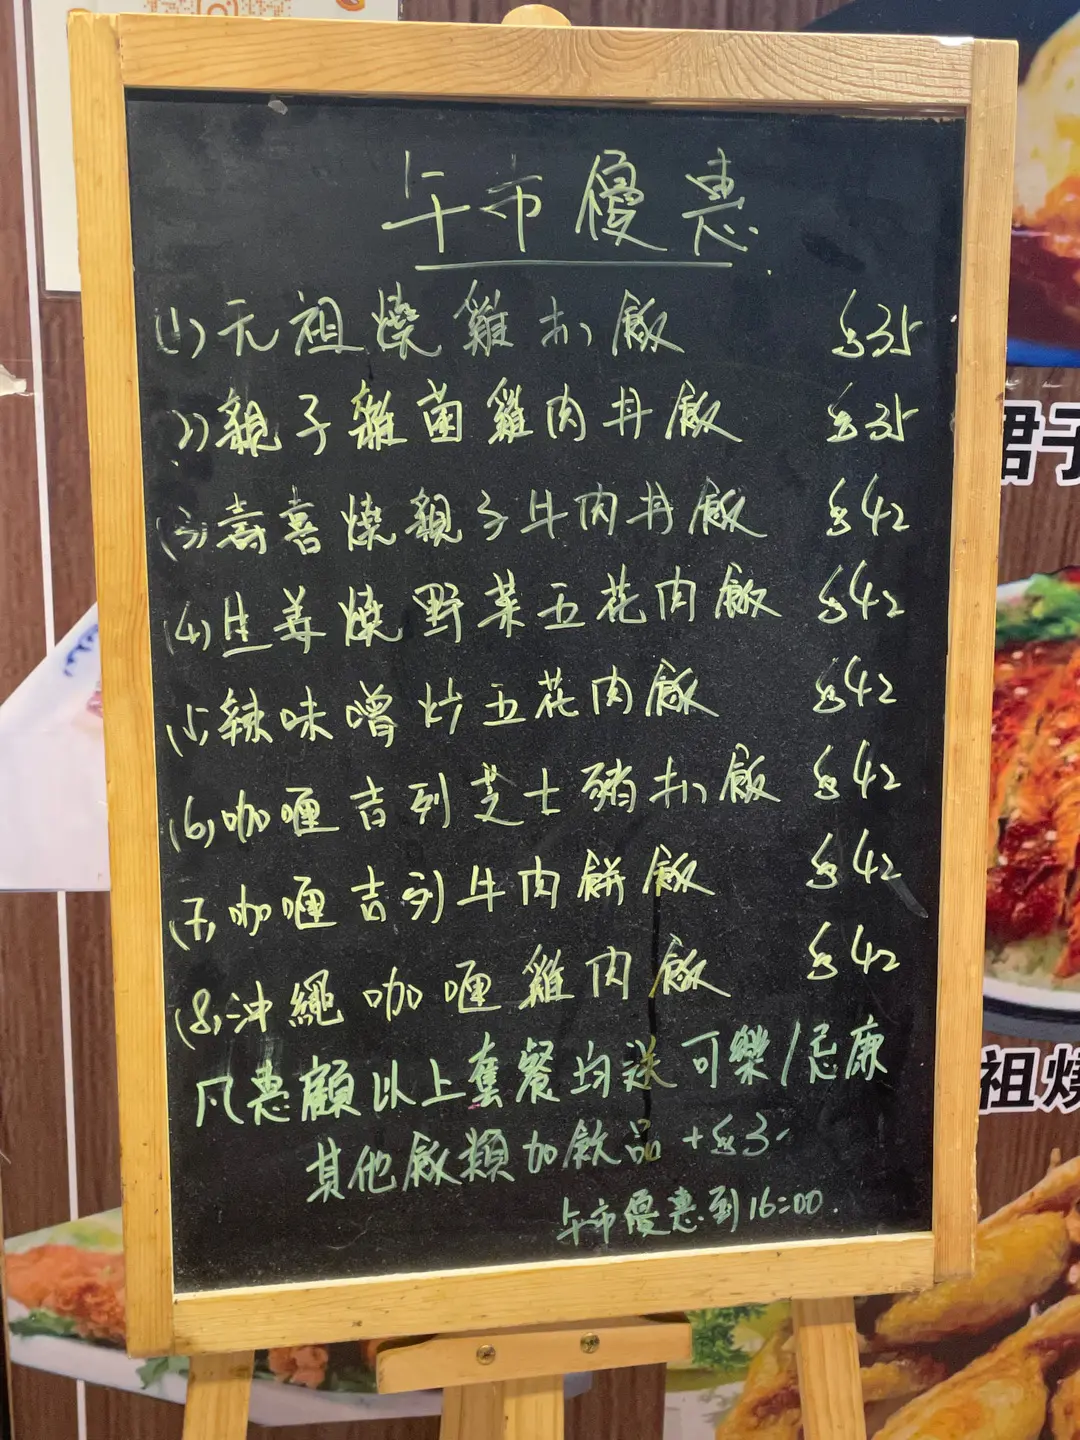 午市優惠
(1) 元祖燒雞扒飯 $35
(2) 親子雜菌雞肉丼飯 $35
(3) 壽喜燒親子牛肉丼飯 $42
(4) 生姜燒野菜五花肉飯 $42
(5) 辣味噌炒五花肉飯 $42
(6) 咖喱吉列芝士豬扒飯 $42
(7) 咖喱吉列牛肉餅飯 $42
(8) 沖繩咖喱雞肉飯 $42
凡惠顧以上套餐均送可樂/忌廉
其他飯類加飲品 +$3
午市優惠到16:00.
君子
祖燒